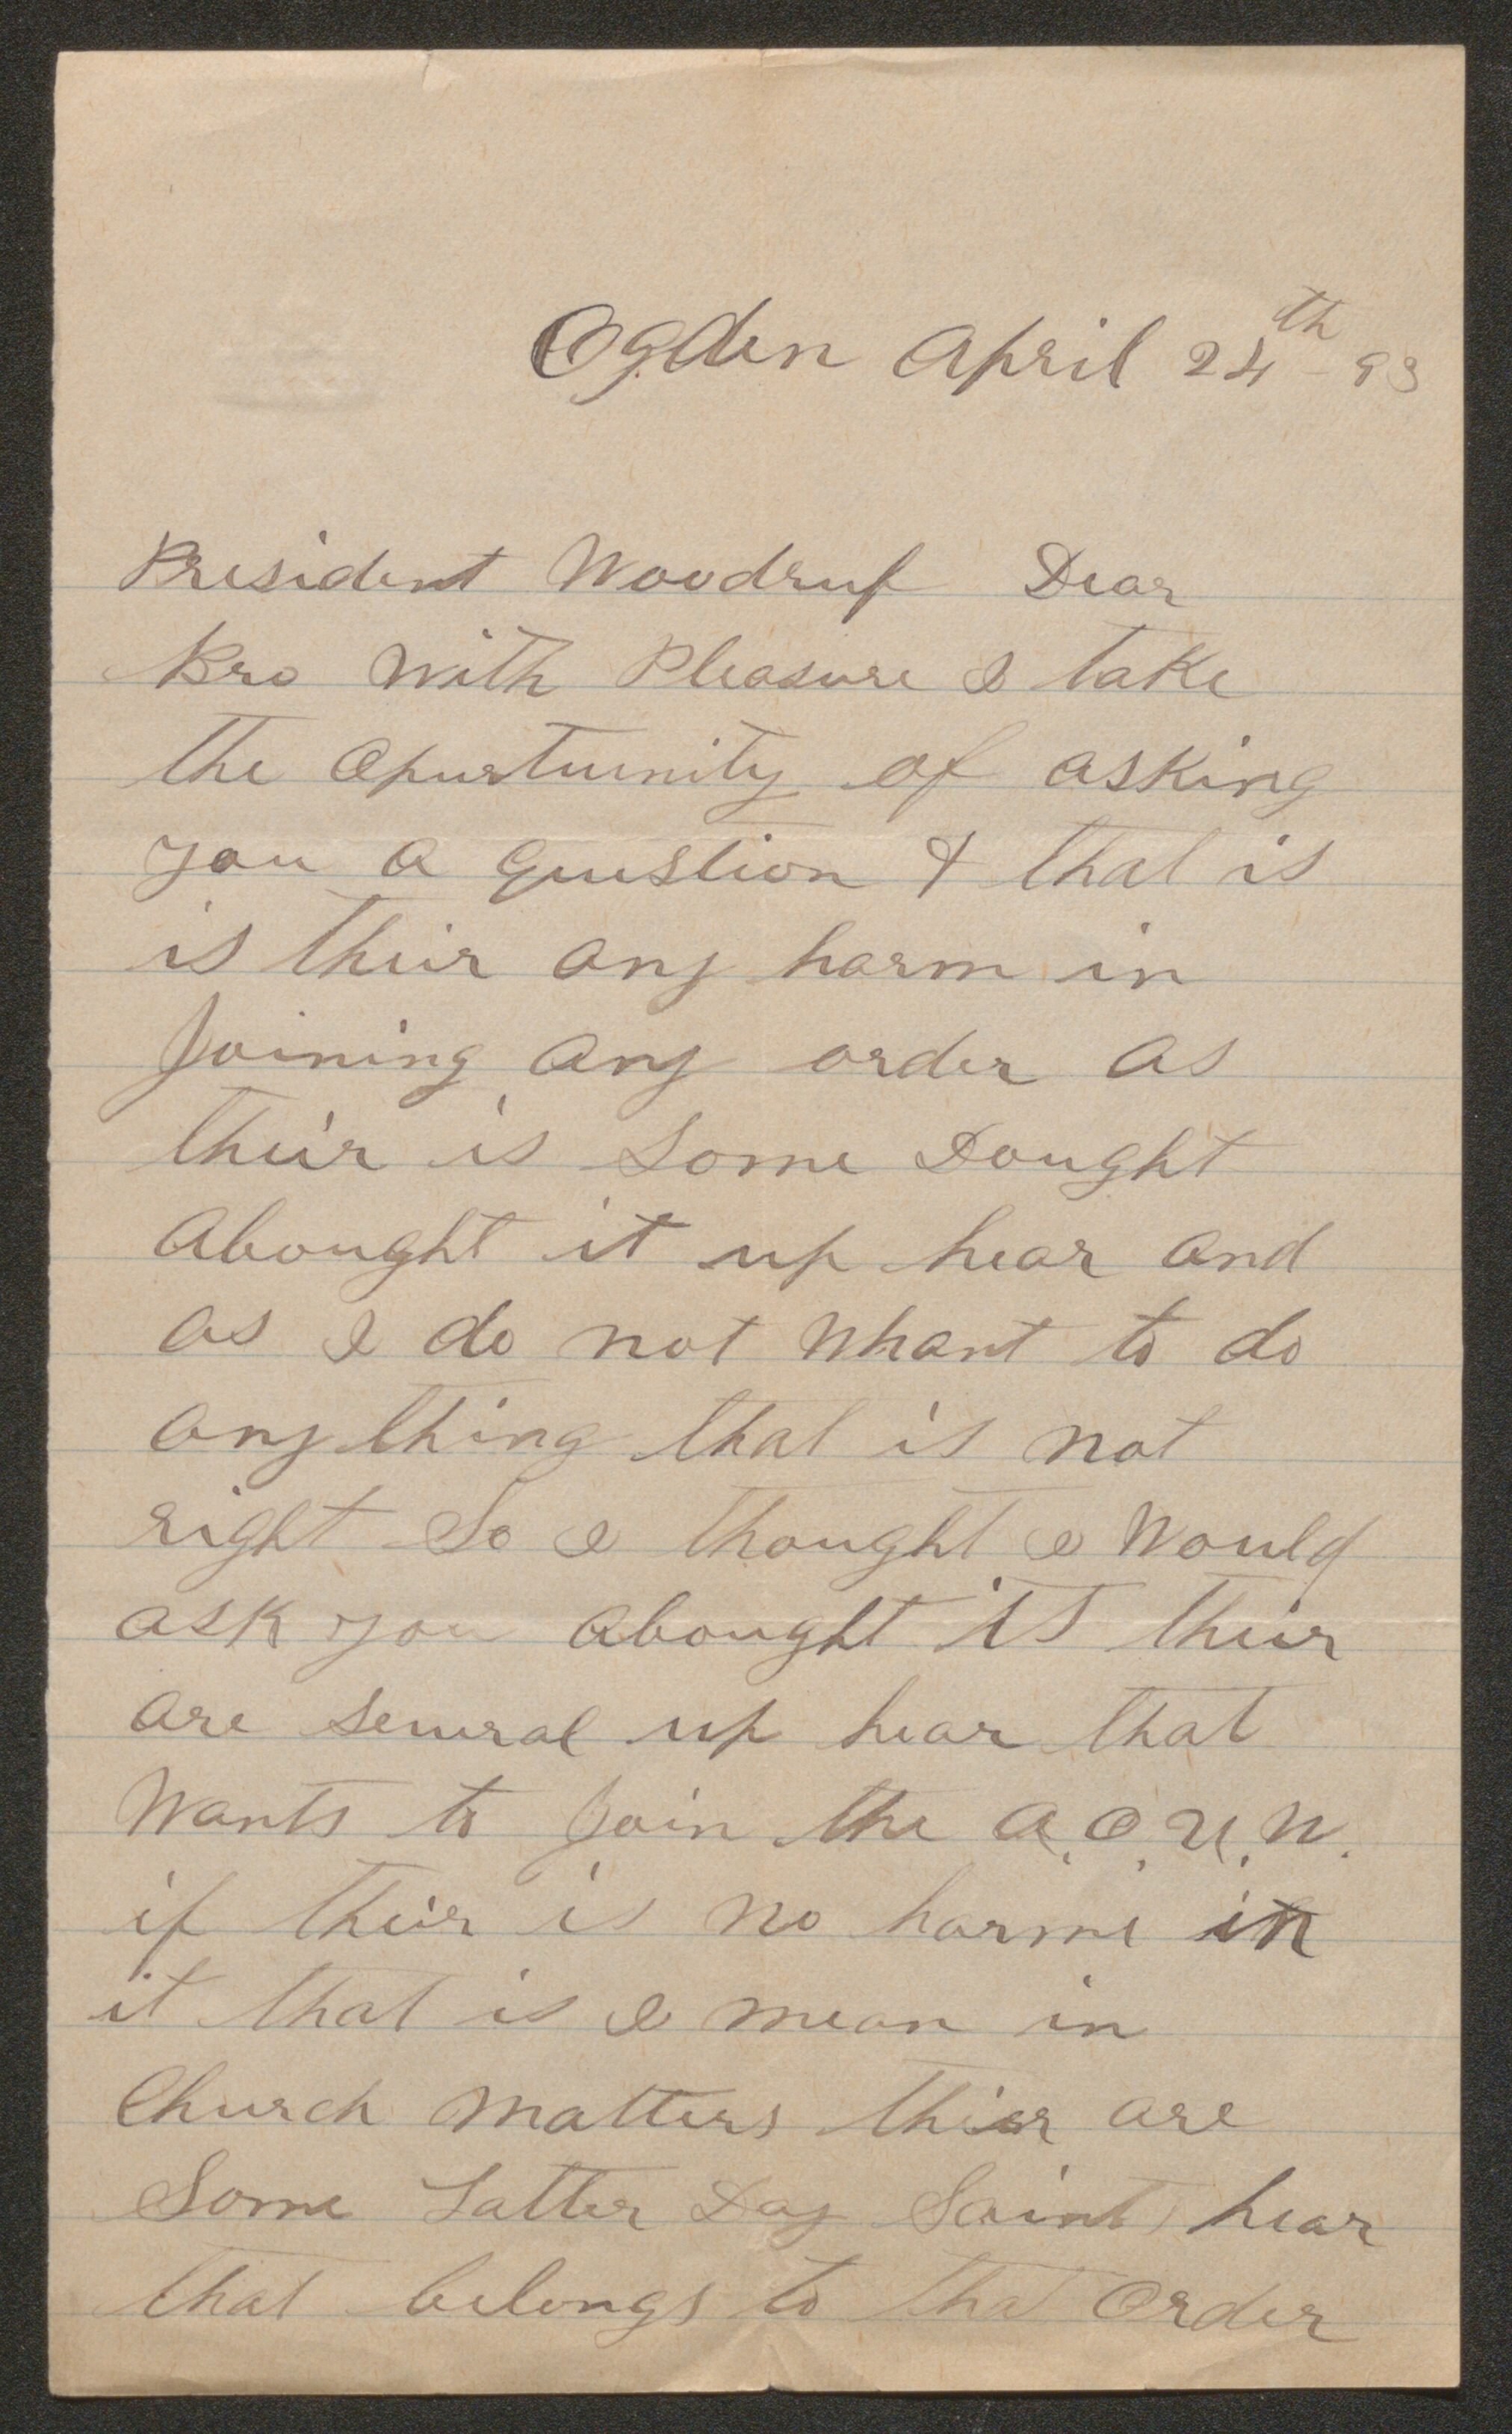 Ogden April 24th - 93
President Woodruf Dear
Bro With Pleasure I take
the Opurtunity of asking
you a Question & that is
is their any harm in
Joining any order as
their is Some Dought
Abought it up hear and
as I do not Whant to do
any thing that is not
right So I thought I Would
ask you abought it their
are several up hear that
Wants to Join the A.O.U.W.
if their is no harme in
it that is I mean in
Church Matters thier are
Some Latter Day Saints hear
that belongs to that Order